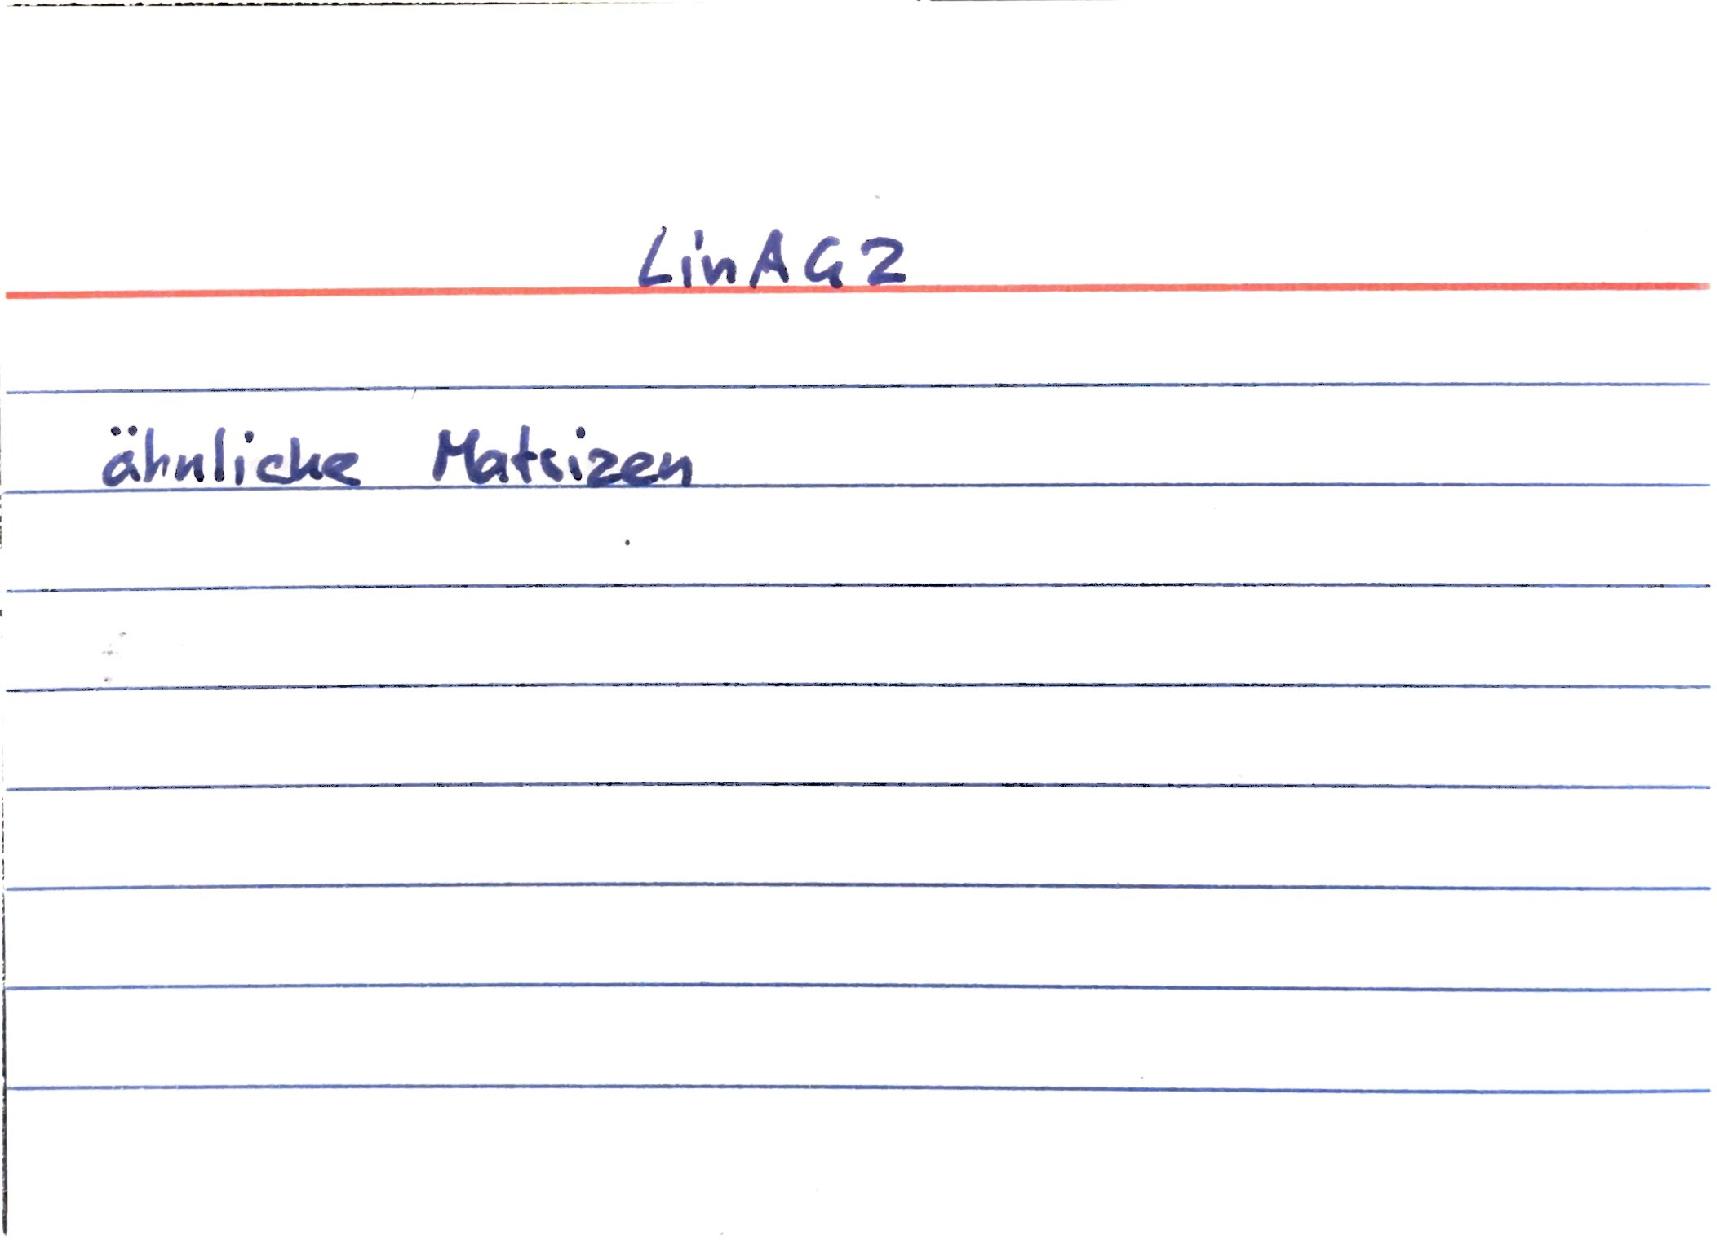 LinAG2
ähnliche Matrizen